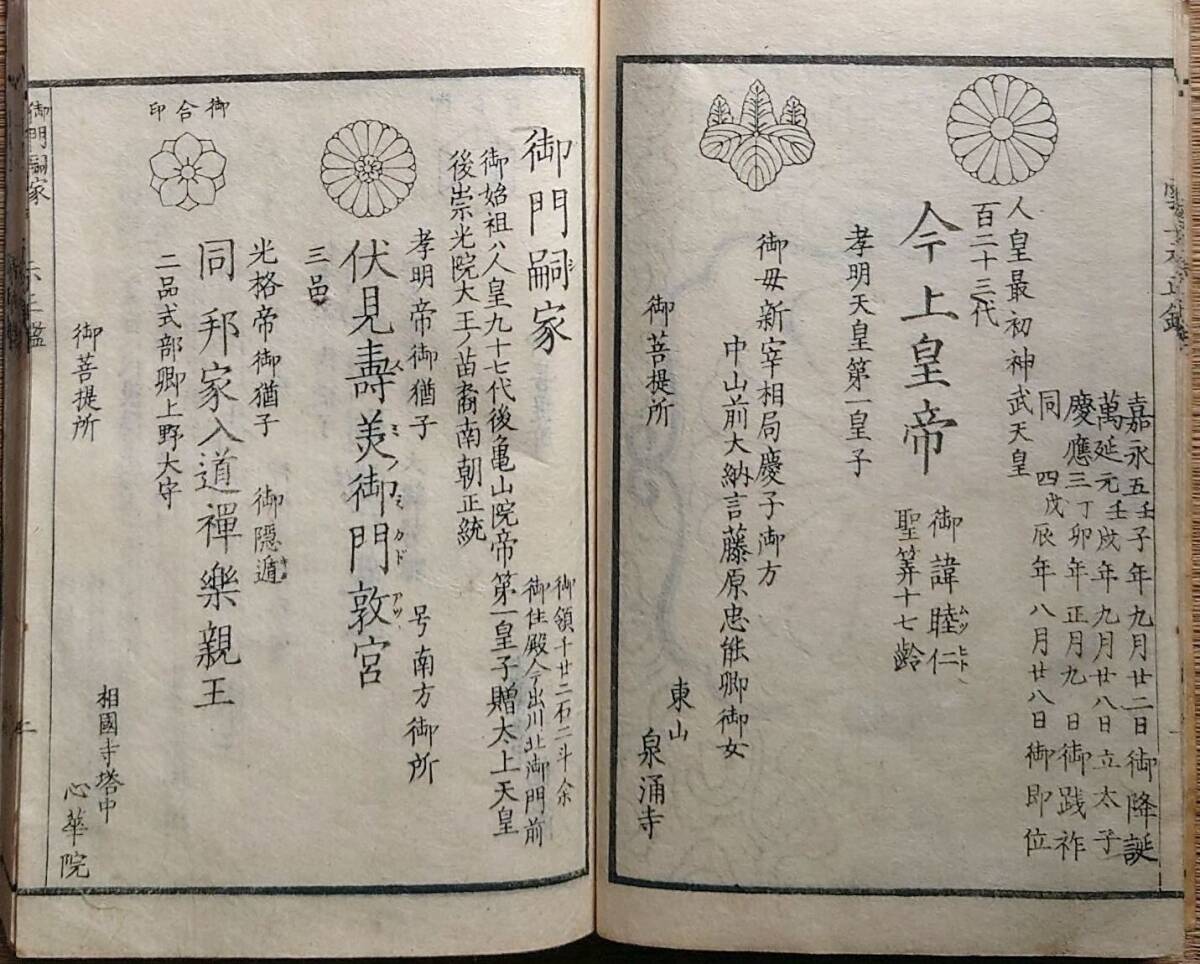 人皇最初神武天皇
百二十三代
嘉永五壬子年九月廿二日御降誕
萬延元壬戌年九月廿八日立太子
慶應三丁卯年正月九日御践祚
同四戊辰年八月廿八日御即位
今上皇帝
御諱睦仁
ムツヒト
聖算十七齢
孝明天皇第一皇子
御母新宰相局慶子御方
中山前大納言藤原忠能卿御女
御菩提所
東山
泉涌寺
御門嗣家
シ
御領千廿二石二斗余
御住殿今出川北御門前
御始祖ハ人皇九十七代後亀山院帝第一皇子贈太上天皇
後崇光院大王ノ苗裔南朝正統
孝明帝御猶子
号南方御所
伏見壽美御門敦宮
スミノミカドアツ
三邑
光格帝御猶子
御隠遁
同邦家入道禪樂親王
二品式部卿上野大守
御菩提所
相國寺塔中
心華院
御合印
御門嗣家